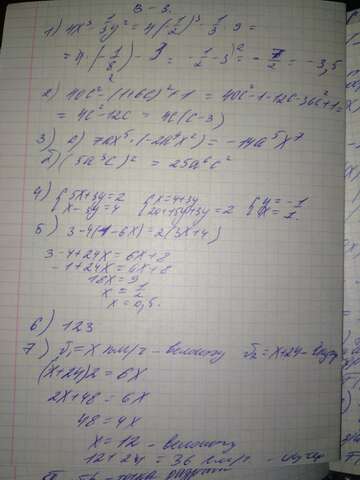 В - 3.
1) 4x³ - 1/3 y² = 4(-1/2)³ - 1/3 · 9 =
= 4 · (-1/8) - 3 = -1/2 - 3 = -7/2 = -3,5
2) 40c² - (1+6c)² + 1 = 40c² - 1 - 12c - 36c² + 1 =
= 4c² - 12c = 4c(c-3)
3) а) 7ax⁵ · (-2a⁴x²) = -14a⁵x⁷
б) (5a³c)² = 25a⁶c²
4) { 5x+3y=2 { x=4+3y { y=-1
x-3y=4 20+15y+3y=2 x=1.
5) 3-4(1-6x)=2(3x+4)
3-4+24x=6x+8
-1+24x=6x+8
18x=9
x=1/2
x=0,5.
6) 123
7) V₁=x км/ч - велосип V₂=x+24 -
(x+24)2=6x
2x+48=6x
48=4x
x=12 - велосип
12+24=36 км/ч -